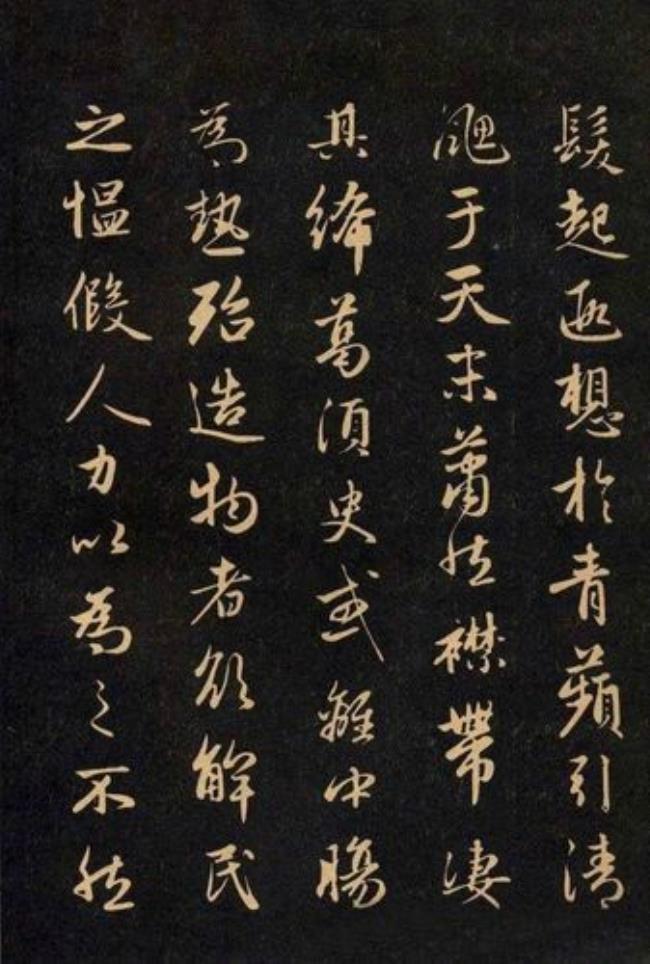 髮起遐想於青蘋引清
颸于天末蕭然襟帶淒
其絺葛須臾或離中腸
為熱殆造物者欲解民
之慍假人力以為之不然